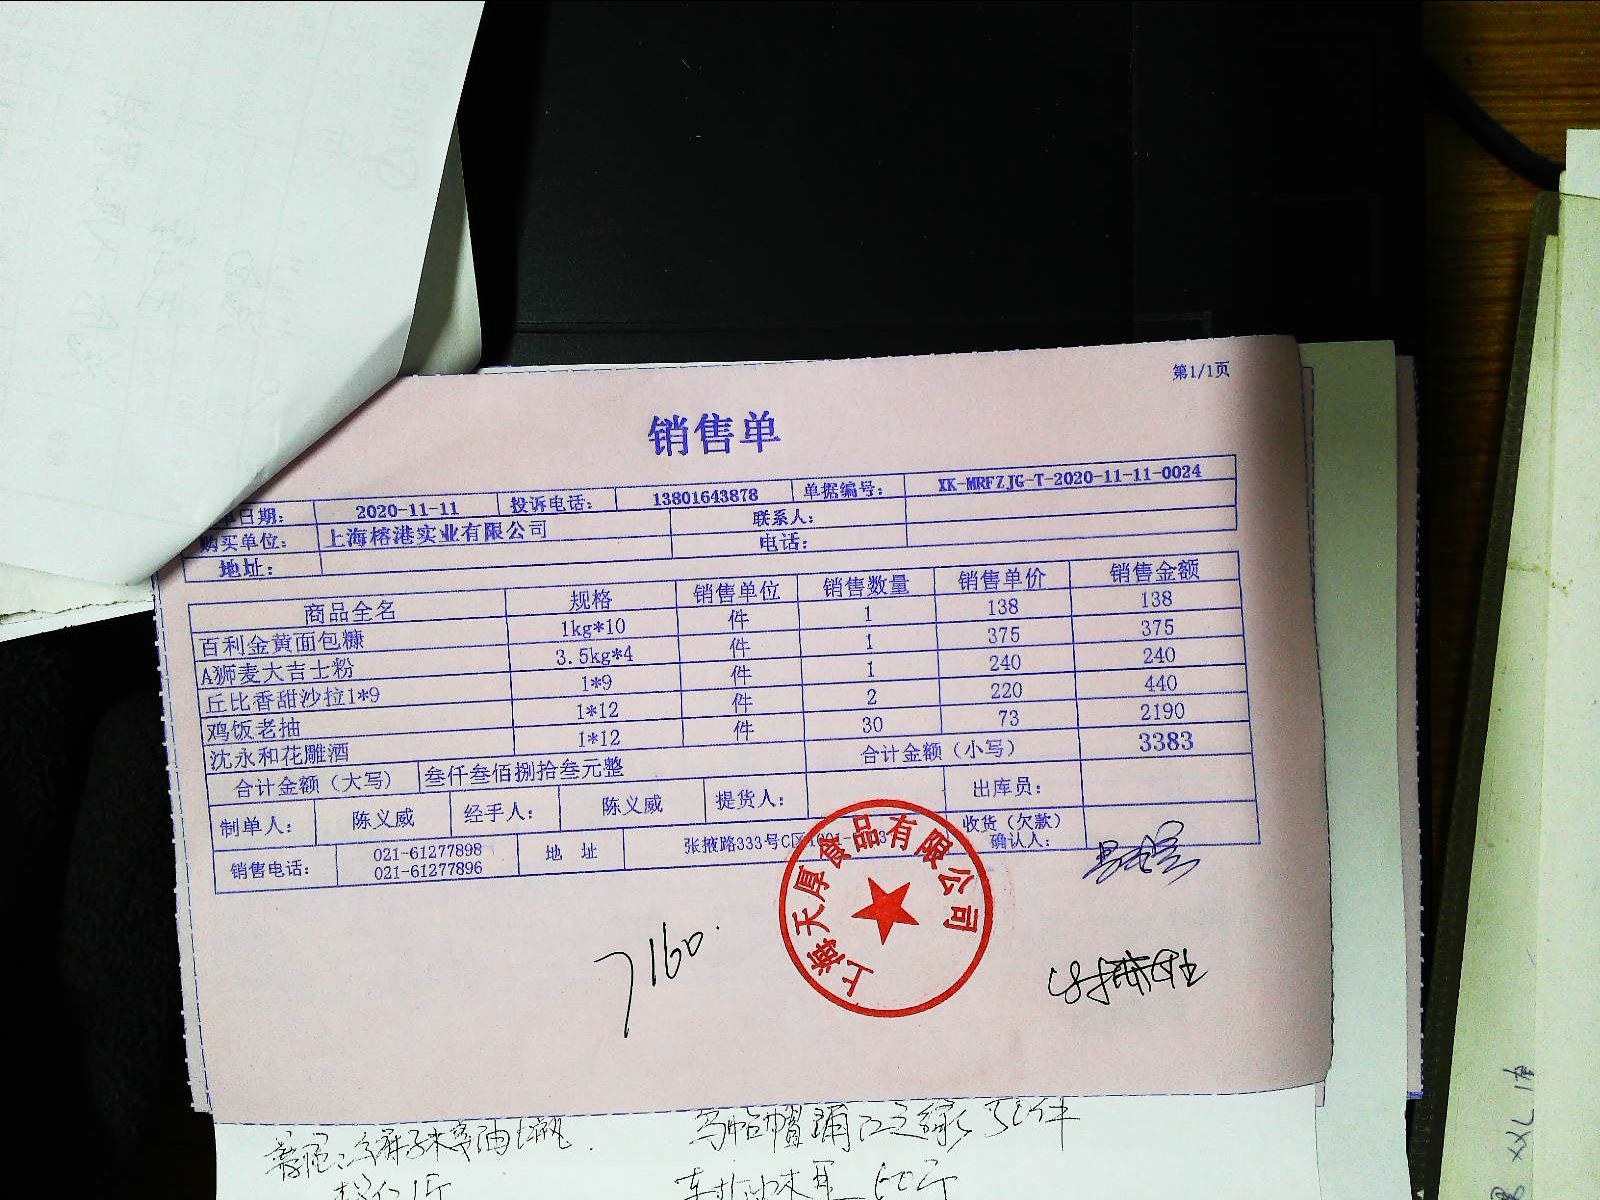 第1/1页
销售单
单日期： 2020-11-11 投诉电话： 13801643878 单据编号： XK-MRFZJG-T-2020-11-11-0024
购买单位： 上海榕港实业有限公司 联系人：
地址： 电话：
商品全名 规格 销售单位 销售数量 销售单价 销售金额
百利金黄面包糠 1kg*10 件 1 138 138
A狮麦大吉士粉 3.5kg*4 件 1 375 375
丘比香甜沙拉1*9 1*9 件 1 240 240
鸡饭老抽 1*12 件 2 220 440
沈永和花雕酒 1*12 件 30 73 2190
合计金额（大写） 叁仟叁佰捌拾叁元整 合计金额（小写） 3383
制单人： 陈义威 经手人： 陈义威 提货人： 出库员：
销售电话： 021-61277898 021-61277896 地 址 张掖路333号C区 收货（欠款）确认人：
上海天厚食品有限公司
7160.